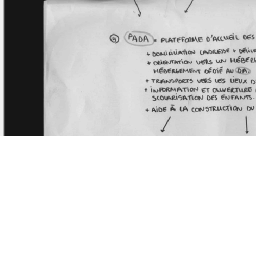 ④ PADA = PLATEFORME D'ACCUEIL DES
+ DOMICILIATION (ADRESSE +
+ ORIENTATION VERS UN HÉBER
HÉBERGEMENT DÉDIÉ AU DA)
+ TRANSPORTS VERS LES LIEUX D
+ INFORMATION ET OUVERTURE
SCOLARISATION DES ENFANTS.
+ AIDE À LA CONSTRUCTION DU